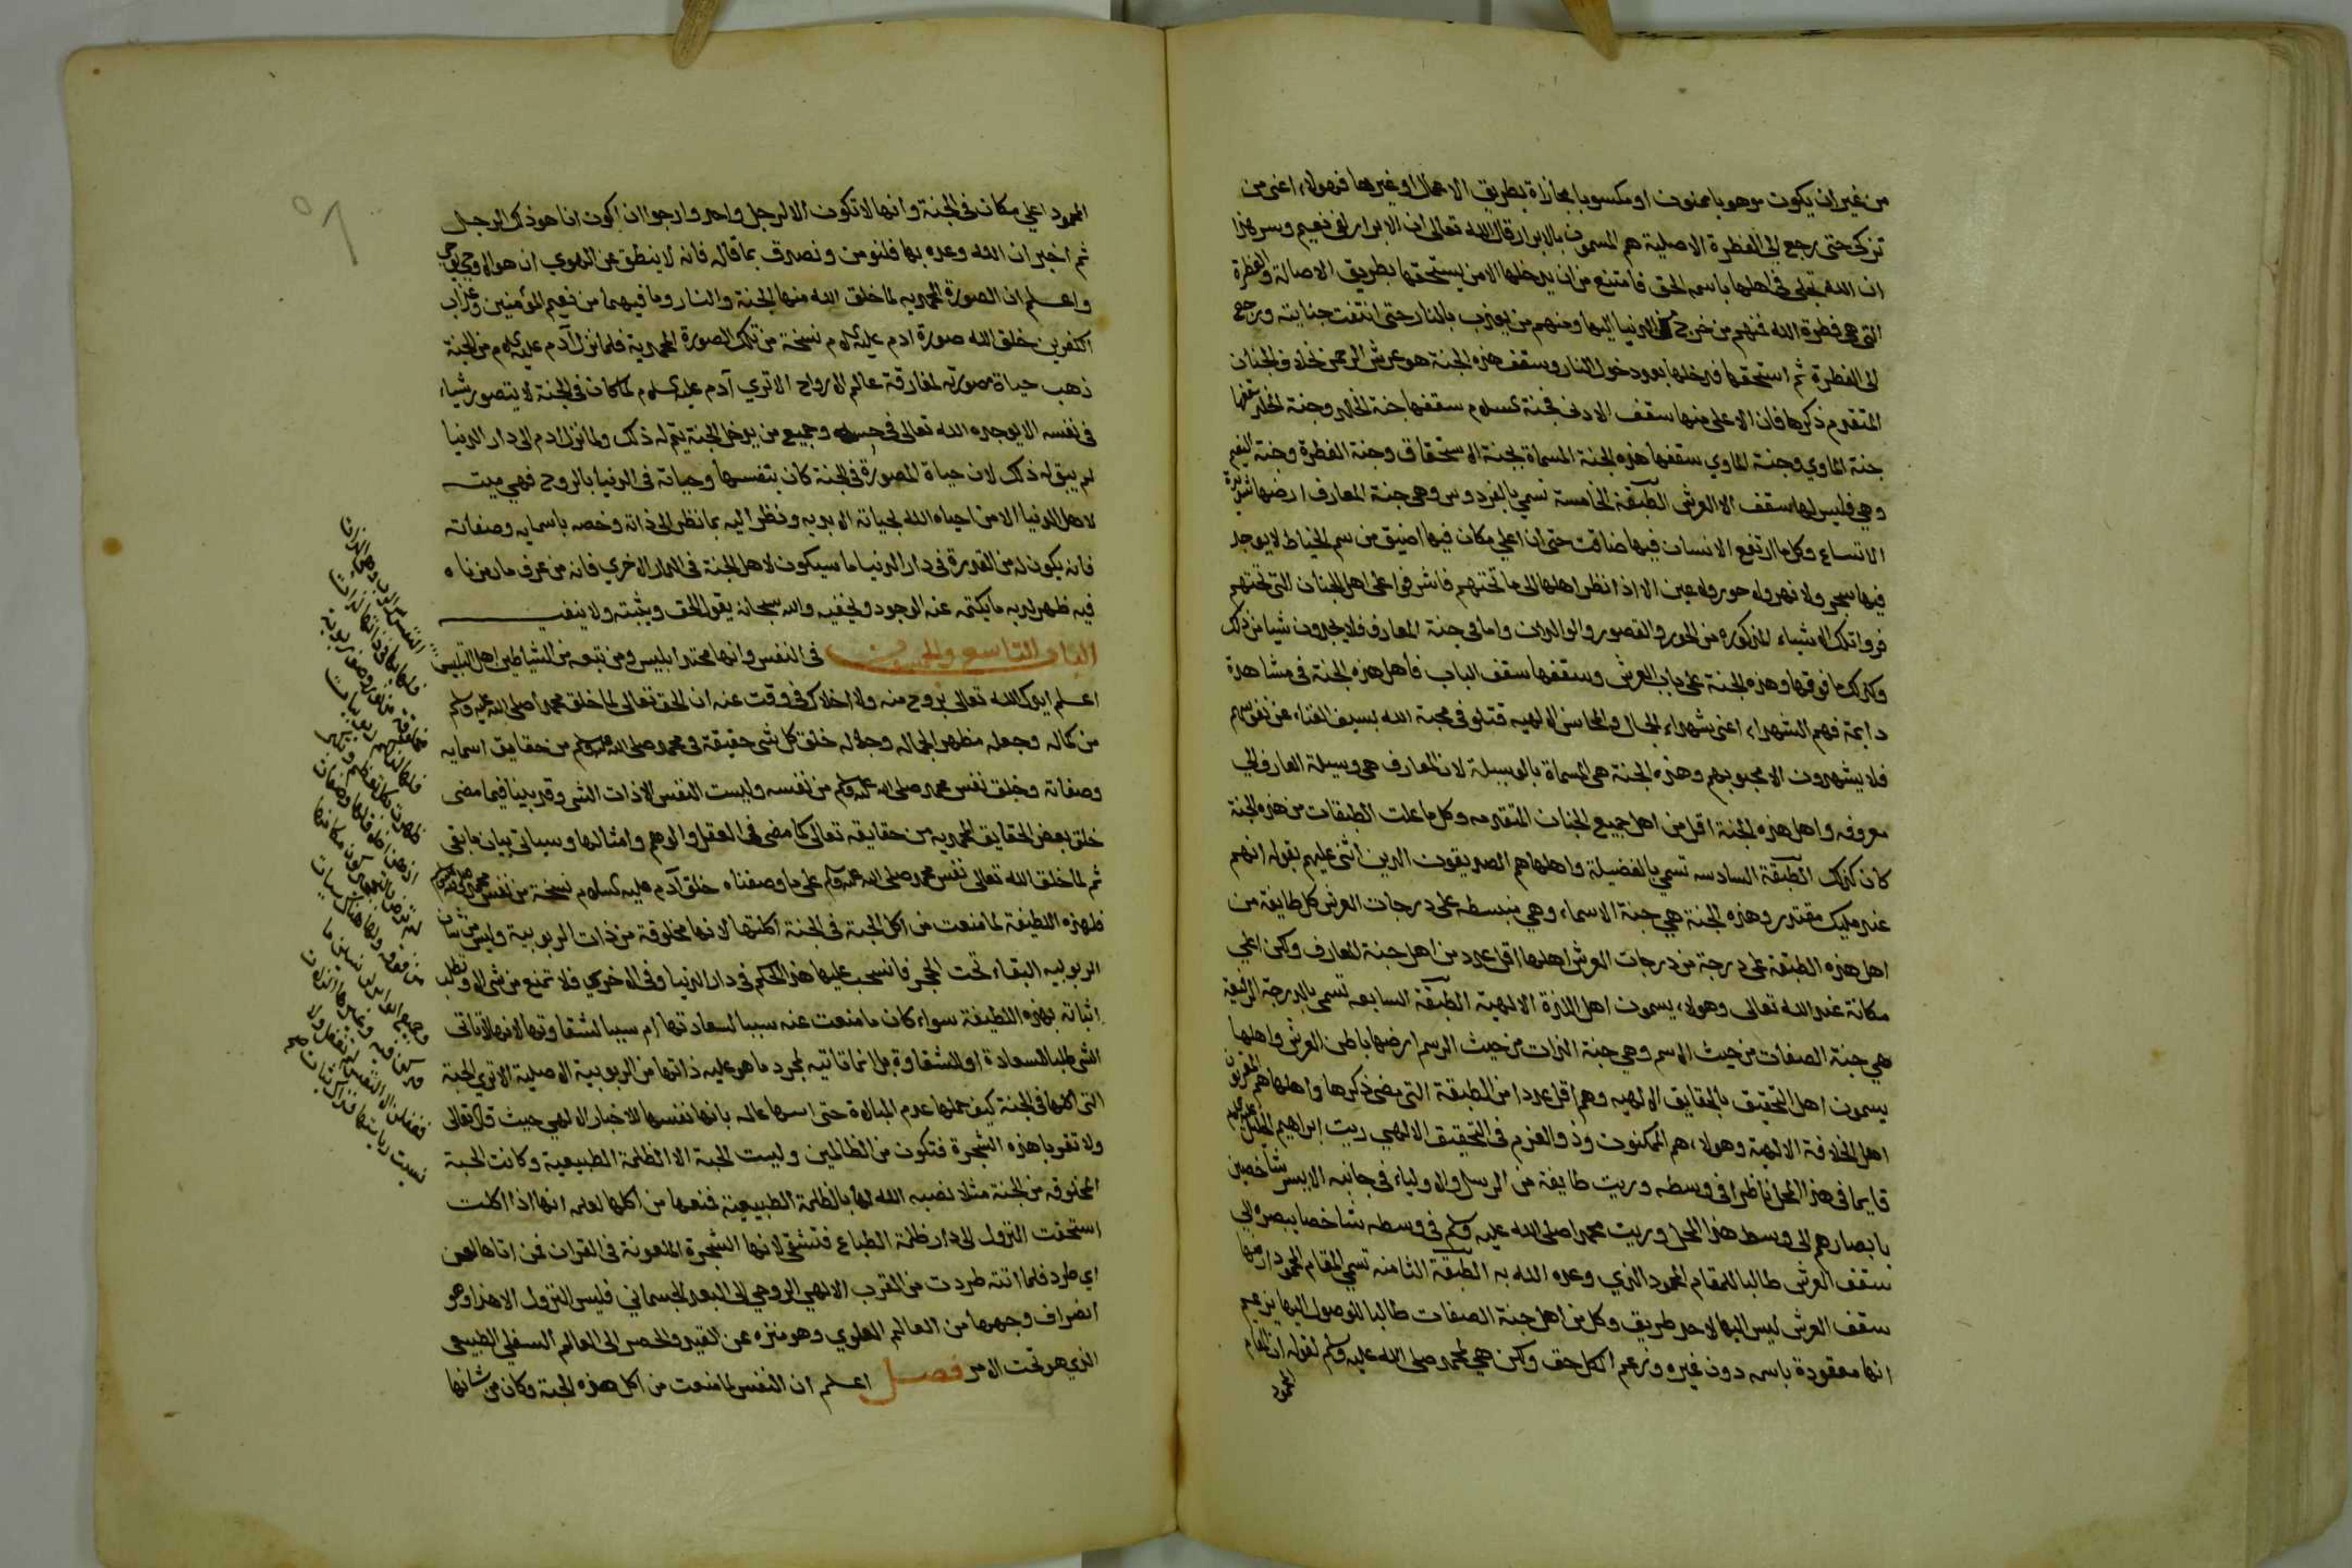 من غير ان يكون موهوبا بمنون او مكسوبا بمجازاة بطريق الاعمال او غيرها فهولاء اعني من
تزكى حتى رجع الى الفطرة الاصلية هم المسمون بالابرار قال الله تعالى ان الابرار لفي نعيم وسر هذا
ان الله تجلى في اهلها باسمه الحق فامتنع من ان يدخلها الا من يستحقها بطريق الاصالة والفطرة
التي هي فطرة الله فمنهم من خرج من الدنيا اليها ومنهم من يعذب بالنار حتى انتفت جنايته ورجع
الى الفطرة ثم استحقها فدخلها بعد دخول النار وسقف هذه الجنة هو عرش الرحمن بخلاف الجنان
المتقدم ذكرها فان الاعلى منها سقف الادنى فجنة السلام سقفها جنة الخلد وجنة الخلد سقفها
جنة الماوي وجنة الماوي سقفها هذه الجنة المسماة بجنة الاستحقاق وجنة الفطرة وجنة النعيم
وهي فليس لها سقف الا العرش الطبقة الخامسة تسمي بالفردوس وهي جنة المعارف ارضها شديدة
الاتساع وكل ما ارتفع الانسان فيها ضاقت حتى ان اعلي مكان فيها اضيق من سم الخياط لا يوجد
فيها شجر ولا نهر ولا حور ولا عين الا اذا نظر اهلها الى ما تحتهم فاشرفوا على اهل الجنان التي تحتهم
فراو تلك الاشياء المذكوره من الحور والقصور والولدان واما في جنة المعارف فلا يجدون شيا من ذلك
وكذلك ما فوقها وهذه الجنة على باب العرش وسقفها سقف الباب فاهل هذه الجنة في مشاهدة
دايمة فهم الشهداء اعني شهداء الجمال والمحاسن الالهيه قتلو في محبة الله بسيف الفناء عن نفوسهم
فلا يشهدون الا محبوبهم وهذه الجنة هي المسماة بالوسيلة لان المعارف هي وسيلة العارف الي
معروفه واهل هذه الجنة اقل من اهل جميع الجنات المتقدمه وكل ما علت الطبقات من هذه الجنة
كان كذلك الطبقة السادسه تسمي بالفضيلة واهلها هم الصديقون الذين اثني عليهم بقوله انهم
عند مليك مقتدر وهذه الجنة هي جنة الاسماء وهي منبسطه على درجات العرش كل طايفة من
اهل هذه الطبقة على درجة من درجات العرش اهلها اقل عدد من اهل جنة المعارف ولكن اعلي
مكانة عند الله تعالى وهولاء يسمون اهل اللذة الالهية الطبقة السابعه تسمي بالدرجة الرفيعة
هي جنة الصفات من حيث الاسم وهي جنة الذات من حيث الرسم ارضها باطن العرش واهلها
يسمون اهل التحقيق بالحقايق الالهيه وهم اقل عددا من الطبقة التي مضى ذكرها واهلها هم المقربون
اهل الخلافة الالهية وهولاء هم الممكنون وذو العزم في التحقيق الالهي رايت ابراهيم الخليل عليه السلام
قايما في هذا المحل ناظرا في وسطه وريت طايفة من الرسل والاولياء في جانبه الايسر شاخصين
بابصارهم الى وسط هذا المحل وريت محمدا صلى الله عليه وسلم في وسطه شاخصا ببصره الي
سقف العرش طالبا للمقام المحمود الذي وعده الله به الطبقة الثامنه تسمي المقام المحمود ارضها
سقف العرش ليس اليها لاحد طريق وكل من اهل جنة الصفات طالبا للوصول اليها يزعم
انها معقودة باسمه دون غيره وزعم الكل حق ولكن هي لمحمد صلى الله عليه وسلم لقوله ان المقام
المحمود
المحمود اعلي مكان في الجنة وانها لا تكون الا لرجل واحد وارجوا ان اكون انا هو ذلك الرجل
ثم اخبر ان الله وعده بها فلنومن ونصدق بما قاله فانه لا ينطق عن الهوي ان هو الا وحي يوحي
واعلم ان الصورة المحمديه لما خلق الله منها الجنة والنار وما فيهما من نعيم المؤمنين وعذاب
الكفرين خلق الله صورة ادم عليه السلام نسخة من تلك الصورة المحمدية فلما نزل آدم عليه السلام من الجنة
ذهب حياة صورته لمفارقة عالم الارواح الا تري آدم عليه السلام لما كان في الجنة لا يتصور شياء
في نفسه الا يوجده الله تعالى في حسه وجميع من يدخل الجنة يتم له ذلك ولما نزل ادم الى دار الدنيا
لم يبق له ذلك لان حياة المصورة في الجنة كان بنفسها وحياته في الدنيا بالروح فهي ميت
لاهل الدنيا الا من احياه الله بحياته الابديه ونظر اليه بما نظر الى ذاته وخصه باسمايه وصفاته
فانه يكون له من القدرة في دار الدنيا ما سيكون لاهل الجنة في الدار الاخري فانه من عرف ما رمزناه
فيه ظهر لديه ما يكتمه عنه الوجود ويخفيه والله سبحانه يقول الحق ويثبته ولا ينفيه
الباب التاسع والخمسون في النفس وانها محتد ابليس ومن تبعه من الشياطين اهل التلبيس
اعلم ايدك الله تعالى بروح منه ولا اخلاك في وقت عنه ان الحق تعالى لما خلق محمدا صلى الله عليه وسلم
من كماله وجعله مظهر لجماله وجلاله خلق كل شي حقيقة في محمد صلى الله عليه وسلم من حقايق اسمايه
وصفاته وخلق نفس محمد صلى الله عليه وسلم من نفسه وليست النفس الا ذات الشي وقد بينا فيما مضى
خلق بعض الحقايق المحمديه من حقايقه تعالى كما مضى في العقل والوهم وامثالها وسياتي بيان ما بقي
ثم لما خلق الله تعالى نفس محمد صلى الله عليه وسلم على ما وصفناه خلق آدم عليه السلام نسخة من نفس محمد صلى الله عليه وسلم
فلهذه اللطيفة لما منعت من اكل الحبة في الجنة اكلتها لانها مخلوقة من ذات الربوبية وليس من شان
الربوبيه البقاء تحت الحجر فانسحب عليها هذا الحكم في دار الدنيا وفي الاخري فلا تمنع من شي الا وتطلب
اتيانه بهذه اللطيفة سواء كان ما منعت عنه سببا لسعادتها ام سببا لشقاوتها لانها لا تاتي
الشي طلبا للسعادة او للشقاوة بل انما تاتيه لمجرد ما هو عليه ذاتها من الربوبية الاصلية الا تري الحبة
التي اكلتها في الجنة كيف حملها عدم المبالاة حتى اكلتها عالمه بانها نفسها للاخبار الالهي حيث قال تعالى
ولا تقربا هذه الشجرة فتكون من الظالمين وليست الحبة الا الظلمة الطبيعية وكانت الحبة
المخلوقه من الجنة مثلا نصبه الله لها بالظلمة الطبيعية فمنعها من اكلها لعلمه انها اذا اكلت
استحقت النزول الى دار ظلمة الطباع فتشقي لانها الشجرة الملعونة في القران فمن اتاها لعن
اي طرد فلما اتته طردت من القرب الالهي الروحي الى البعد الجسماني فليس النزول الا هذا وهو
انصراف وجهها من العالم العلوي وهو منزه عن القيد والحصر الى العالم السفلي الطبيعي
الذي هو تحت الاسر فصل اعلم ان النفس لما منعت من اكل هذه الحبة وكان من شانها